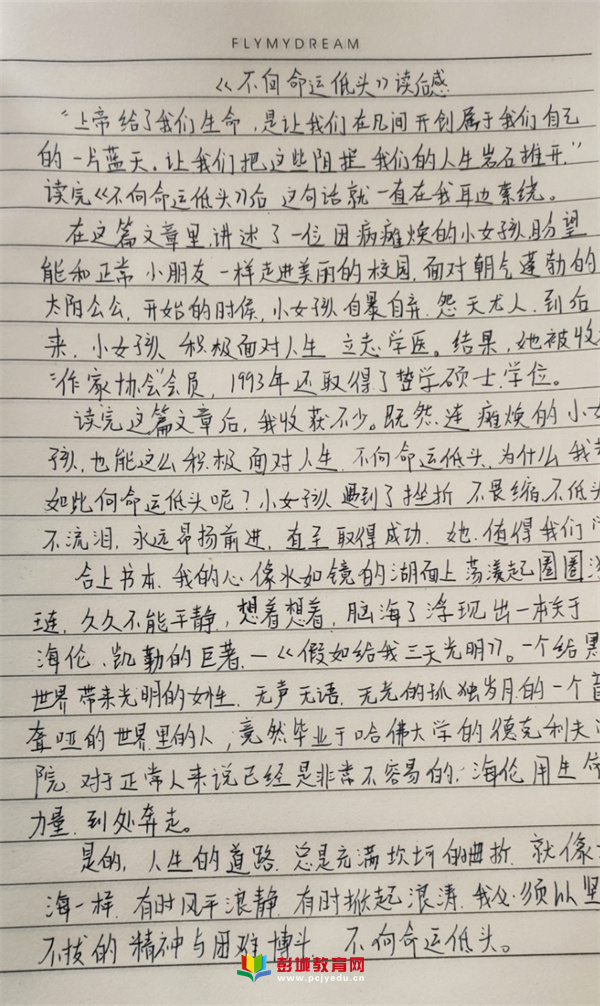 FLYMYDREAM
《不向命运低头》读后感
“上帝给了我们生命，是让我们在凡间开创属于我们自己
的一片蓝天，让我们把这些阻拦我们的人生岩石推开。”
读完《不向命运低头》后 这句话就一直在我耳边萦绕。
在这篇文章里，讲述了一位因病瘫痪的小女孩，盼望
能和正常小朋友一样走进美丽的校园，面对朝气蓬勃的
太阳公公，开始的时候，小女孩自暴自弃、怨天尤人，到后
来，小女孩积极面对人生 立志学医。结果，她被收
“作家协会”会员，1993年还取得了哲学硕士学位。
读完这篇文章后，我收获不少。既然连瘫痪的小女
孩，也能这么积极面对人生，不向命运低头，为什么我
如此向命运低头呢？小女孩遇到了挫折 不畏缩、不低头
不流泪，永远昂扬前进，直至取得成功，她值得我们
合上书本，我的心像水如镜的湖面上荡漾起圈圈
琏，久久不能平静，想着想着，脑海了浮现出一本关于
海伦、凯勒的巨著，—《假如给我三天光明》。一个给黑
世界带来光明的女性，无声无语，无光的孤独岁月的一个盲
聋哑的世界里的人，竟然毕业于哈佛大学的德克利夫
院，对于正常人来说已经是非常不容易的，海伦用生命
力量，到处奔走。
是的，人生的道路，总是充满坎坷的曲折，就像
海一样，有时风平浪静，有时掀起浪涛，我必须以坚
不拔的精神与困难搏斗，不向命运低头。
彭城教育网
www.pcjyedu.cn